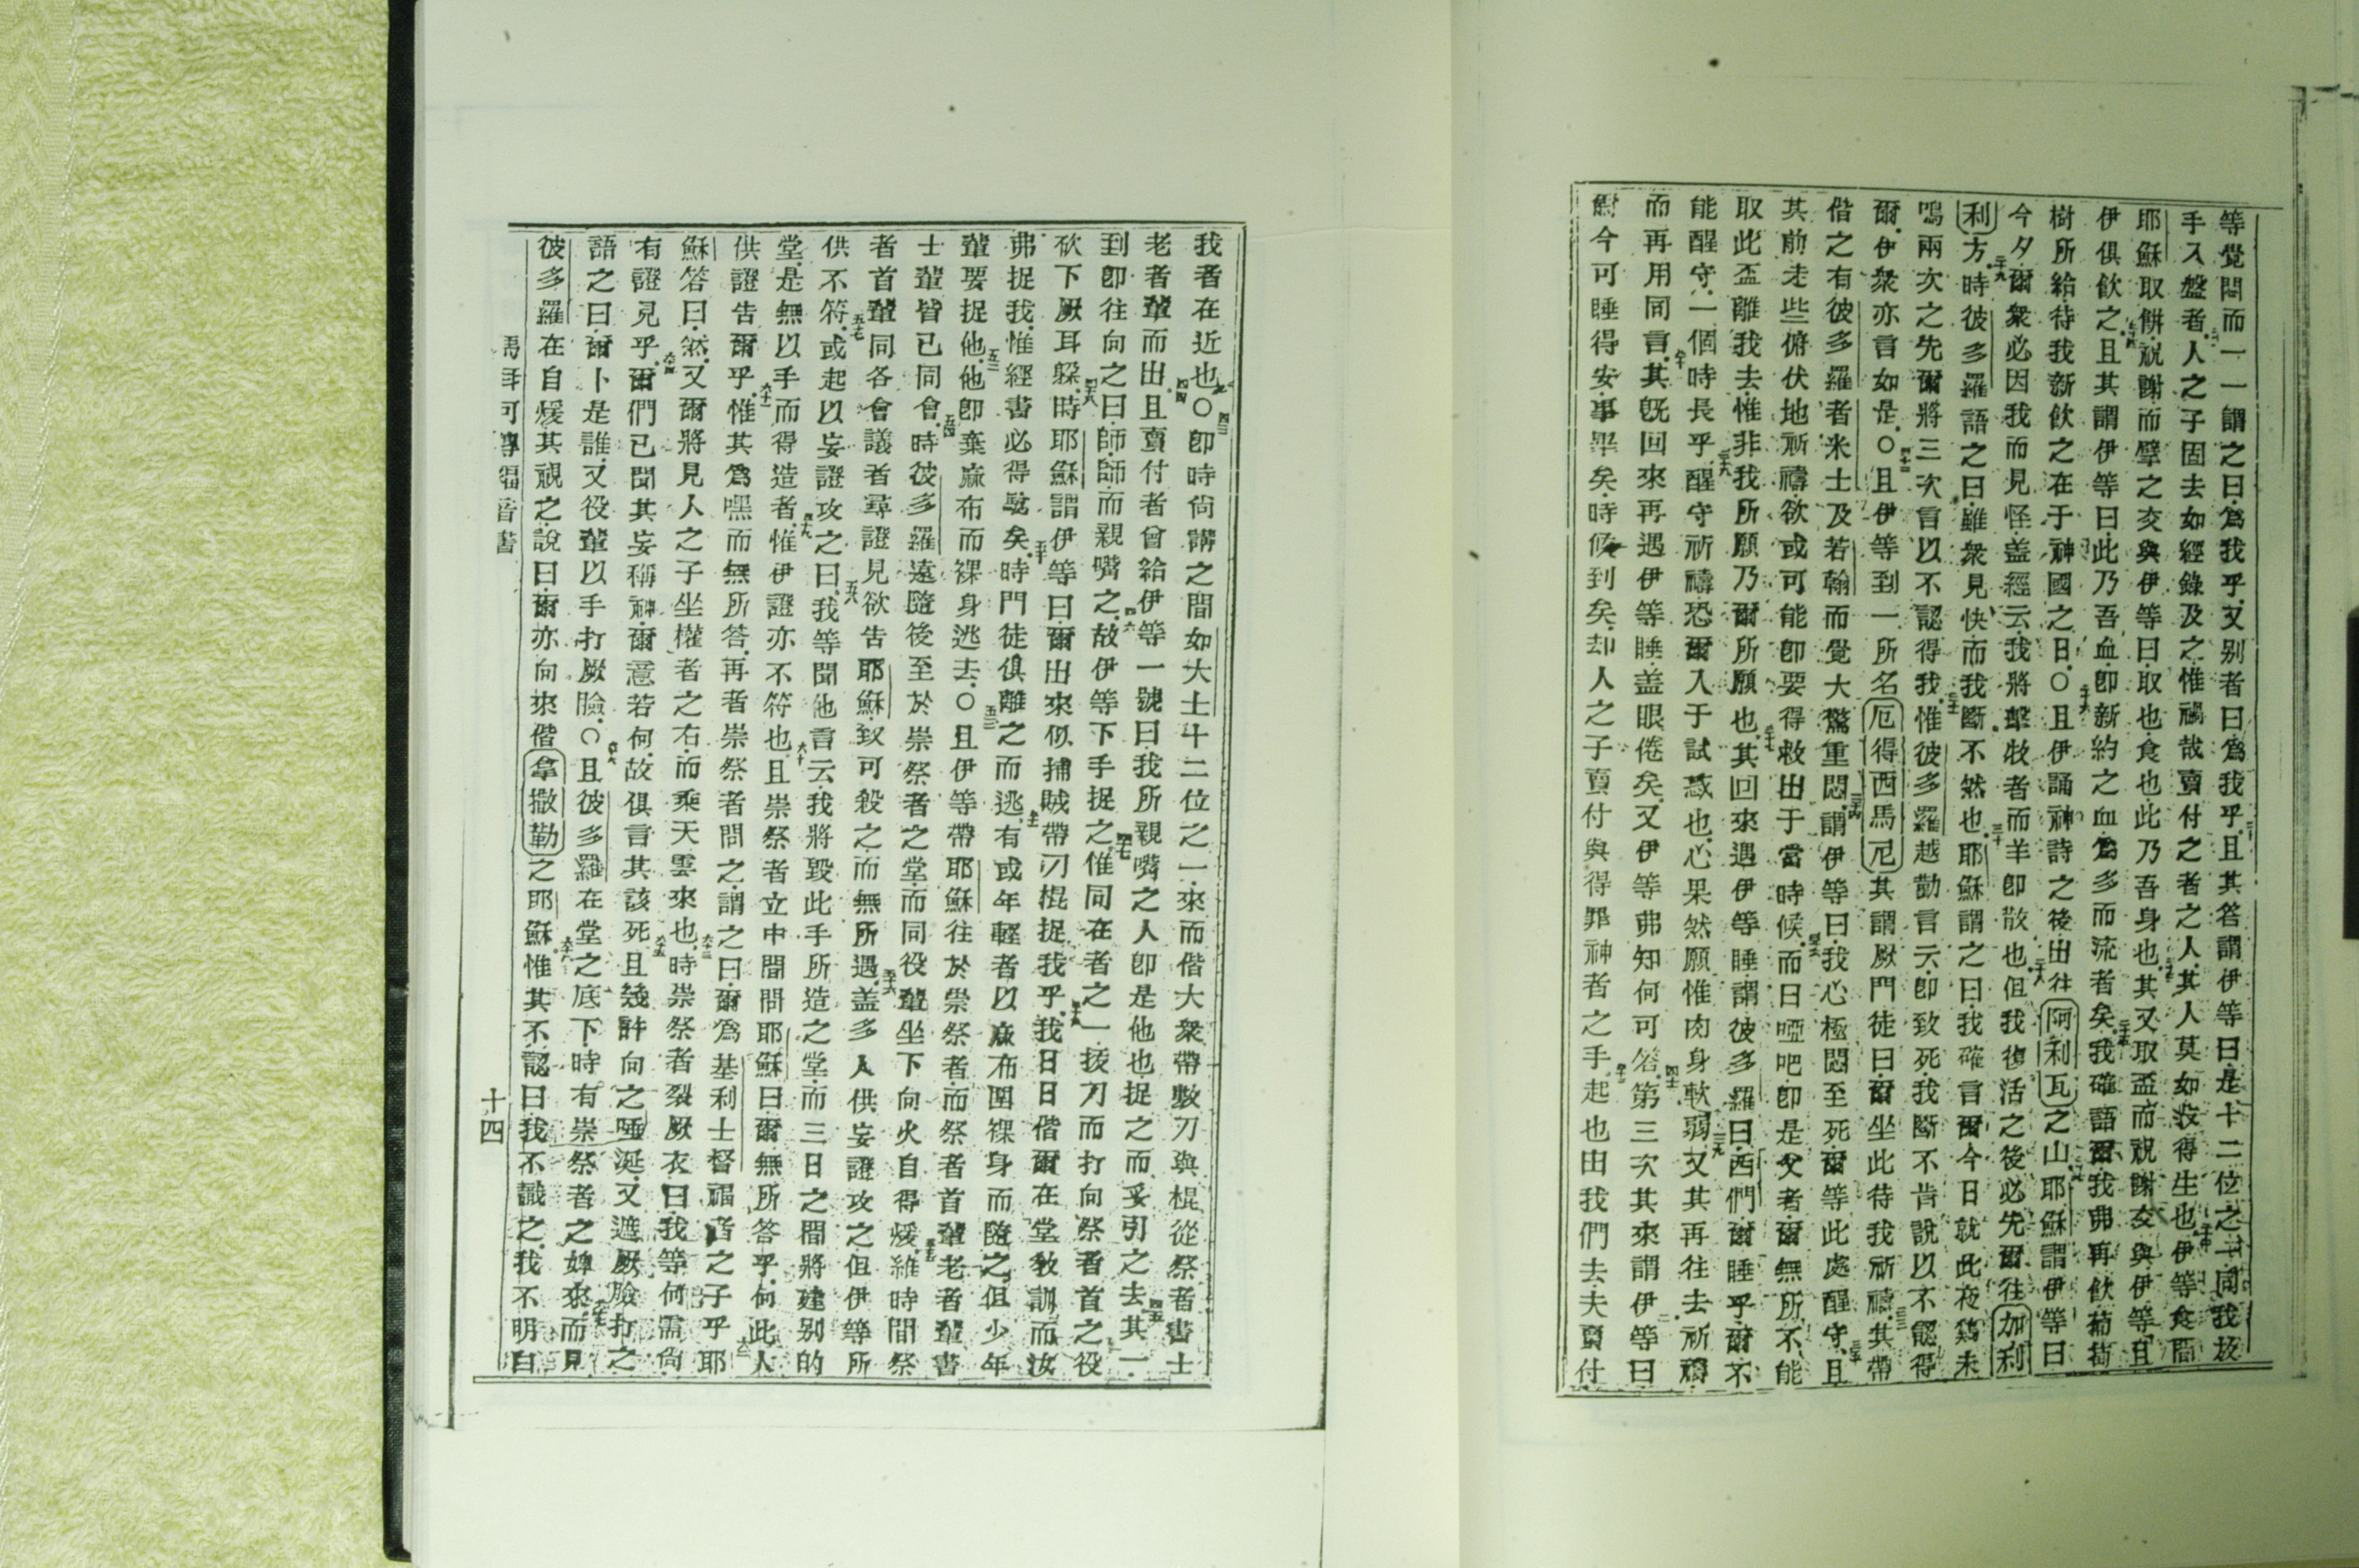 等覺悶而一一謂之曰為我乎又别者曰為我乎且其答謂伊等曰是十二位之一同我放
手入盤者人之子固去如經錄及之惟禍哉賣付之者之人其人莫如沒得生也伊等食間
耶穌取餅祝謝而擘之交與伊等曰取也食也此乃吾身也其又取盃而祝謝交與伊等且
伊俱飲之且其謂伊等曰此乃吾血卽新約之血為多而流者矣我確語爾我弗再飲葡萄
樹所給待我新飲之在于神國之日○且伊誦神詩之後出往阿利瓦之山耶穌謂伊等曰
今夕爾衆必因我而見怪盖經云我將擊牧者而羊卽散也但我復活之後必先爾往加利
利方時彼多羅語之曰雖衆見快而我斷不然也耶穌謂之曰我確言爾今日就此夜鷄未
鳴兩次之先爾將三次言以不認得我惟彼多羅越勸言云卽致死我斷不肯說以不認得
爾伊衆亦言如是○且伊等到一所名厄得西馬尼其謂厥門徒曰爾坐此待我祈禱其帶
偕之有彼多羅者米士及若翰而覺大驚重悶謂伊等曰我心極悶至死爾等此處醒守且
其前走些俯伏地祈禱欲或可能卽要得救出于當時候而曰啞吧卽是父者爾無所不能
取此盃離我去惟非我所願乃爾所願也其回來遇伊等睡謂彼多羅曰西們爾睡乎爾不
能醒守一個時長乎醒守祈禱恐爾入于試惑也心果然願惟肉身軟弱又其再往去祈禱
而再用同言其旣回來再遇伊等睡盖眼倦矣又伊等弗知何可答第三次其來謂伊等曰
爾今可睡得安事畢矣時候到矣却人之子賣付與得罪神者之手起也由我們去夫賣付
我者在近也○卽時尙講之間如大士十二位之一來而偕大衆帶數刀與棍從祭者書士
老者輩而出且賣付者曾給伊等一號曰我所親嘴之人卽是他也捉之而妥引之去其一
到卽往向之曰師師而親嘴之故伊等下手捉之惟同在者之一拔刀而打向祭者首之役
砍下厥耳躲時耶穌謂伊等曰爾出來似捕賊帶刃棍捉我乎我日日偕爾在堂敎訓而汝
弗捉我惟經書必得驗矣時門徒俱離之而逃有或年輕者以蔴布圍裸身而隨之但少年
輩要捉他他卽棄蔴布而裸身逃去○且伊等帶耶穌往於崇祭者而祭者首輩老者輩書
士輩皆已同會時彼多羅遠隨後至於崇祭者之堂而同役輩坐下向火自得煖維時間祭
者首輩同各會議者尋證見欲告耶穌致可殺之而無所遇盖多人供妄證攻之但伊等所
供不符或起以妄證攻之曰我等聞他言云我將毀此手所造之堂而三日之間將建别的
堂是無以手而得造者惟伊證亦不符也且崇祭者立中間問耶穌曰爾無所答乎何此人
供證告爾乎惟其為嘿而無所答再者崇祭者問之謂之曰爾為基利士督福者之子乎耶
穌答曰然又爾將見人之子坐權者之右而乘天雲來也時崇祭者裂厥衣曰我等何需尙
有證見乎爾們已聞其妄稱神爾意若何故俱言其該死且幾許向之唾涎又遮厥臉打之
語之曰爾卜是誰又役輩以手打厥臉○且彼多羅在堂之底下時有崇祭者之婢來而見
彼多羅在自煖其視之說曰爾亦向來偕拿撒勒之耶穌惟其不認曰我不識之我不明白
馬耳可傳福音書
十四